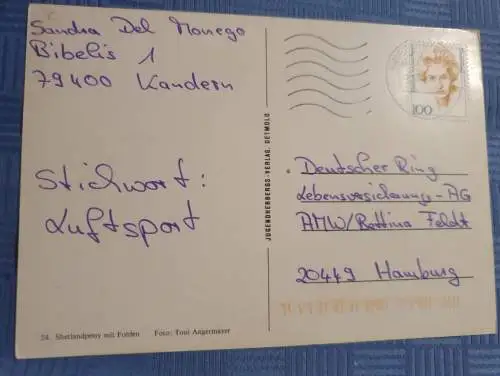 Sandra Del Monego
Bibelis 1
79400 Kandern
Stichwort:
Luftsport
24. Shetlandpony mit Fohlen Foto: Toni Angermayer
JUGENDHERBERGS-VERLAG, DETMOLD
100
Deutscher Ring
Lebensversicherungs-AG
AMW/Bettina Feldt
20449 Hamburg